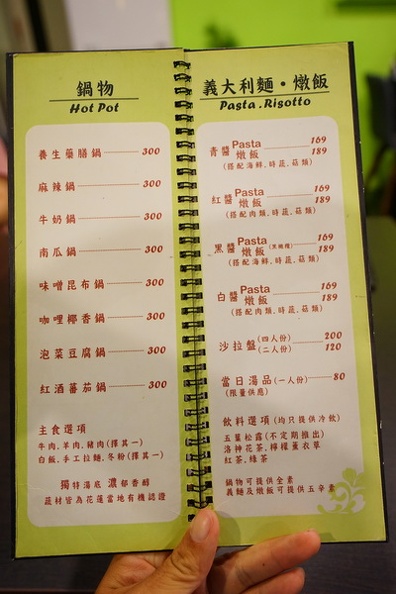 鍋物
Hot Pot
養生藥膳鍋 300
麻辣鍋 300
牛奶鍋 300
南瓜鍋 300
味噌昆布鍋 300
咖哩椰香鍋 300
泡菜豆腐鍋 300
紅酒蕃茄鍋 300
主食選項
牛肉.羊肉.豬肉(擇其一)
白飯.手工拉麵.冬粉(擇其一)
獨特湯底 濃郁香醇
蔬材皆為花蓮當地有機認證
義大利麵・燉飯
Pasta.Risotto
青醬 Pasta 169
燉飯 189
(搭配海鮮.時蔬.菇類)
紅醬 Pasta 169
燉飯 189
(搭配肉類.時蔬.菇類)
黑醬 Pasta 169
燉飯 189
(搭配海鮮.時蔬.菇類)
白醬 Pasta 169
燉飯 189
(搭配肉類.時蔬.菇類)
沙拉盤(四人份) 200
(二人份) 120
當日湯品(一人份) 80
(限量供應)
飲料選項(均只提供冷飲)
五葉松露(不定期推出)
洛神花茶.檸檬薰衣草
紅茶.綠茶
鍋物可提供全素
義麵及燉飯可提供五辛素